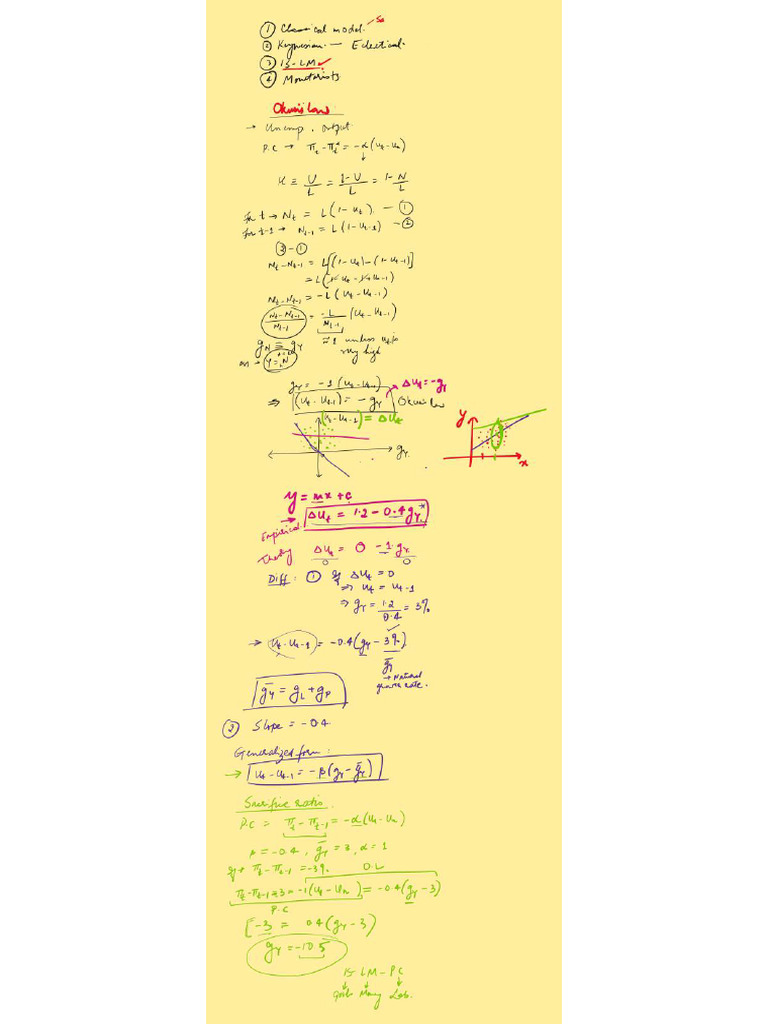 ① Classical model.
② Keynesian. — Eclectical.
③ IS-LM ✓
④ Monetarists
Okun's Law
→ Unemp, output
P.C → π_t - π_t^e = -α(u_t - u_n)
u ≡ U/L = L-U/L = 1-N/L
For t → N_t = L(1-u_t) — ①
for t-1 → N_t-1 = L(1-u_t-1) — ②
② - ①
N_t - N_t-1 = L[(1-u_t)-(1-u_t-1)]
= L(1-u_t-1+u_t-1)
N_t - N_t-1 = -L(u_t - u_t-1)
N_t - N_t-1 / N_t-1 = -L / N_t-1 (u_t - u_t-1)
≈ 1 unless u_t is very high
g_N ≡ g_Y
as → Y = N
g_Y = -1(u_t - u_t-1)
⇒ (u_t - u_t-1) = -g_Y Okun's law
→ Δu_t = -g_Y
(u_t - u_t-1) = Δu_t
g_Y
y
x
y = mx + c
Empirical → Δu_t = 1.2 - 0.4 g_Y*
Theory Δu_t = 0 - 1. g_Y
0 0
Diff: ① if Δu_t = 0
⇒ u_t = u_t-1
⇒ g_Y = 1.2/0.4 = 3%
→ u_t - u_t-1 = -0.4(g_Y - 3%)
ḡ_Y
→ Natural growth rate.
ḡ_Y = g_L + g_P
② Slope = -0.4
Generalized form:
→ u_t - u_t-1 = -β(g_Y - ḡ_Y)
Sacrifice ratio.
P.C = π_t - π_t-1 = -α(u_t - u_n)
= -0.4, ḡ_Y = 3, α = 1
if π_t - π_t-1 = -3% O.L
π_t - π_t-1 = 3 = -1(u_t - u_n) = -0.4(g_Y - 3)
P.C
[-3 = 0.4(g_Y - 3)
g_Y = -10.5
IS-LM-PC
↓ ↓ ↓
Lab.